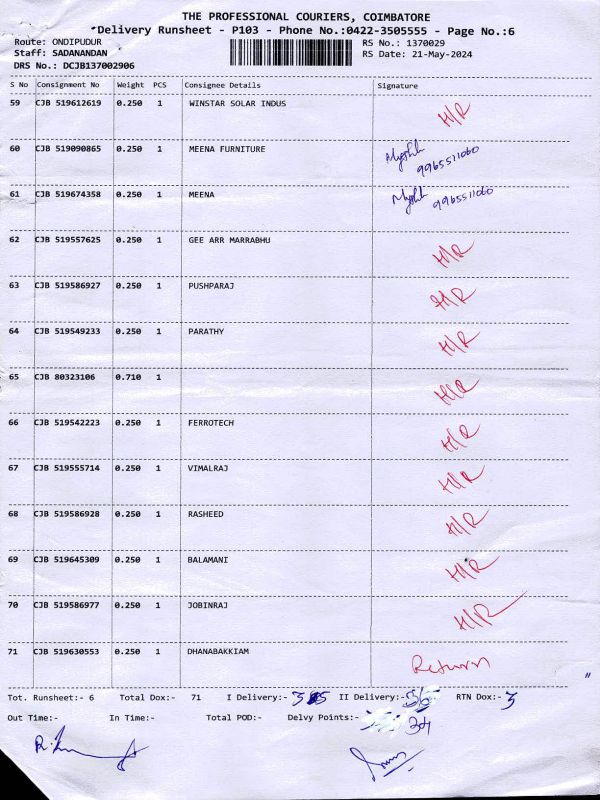 THE PROFESSIONAL COURIERS, COIMBATORE
*Delivery Runsheet - P103 - Phone No.:0422-3505555 - Page No.:6
Route: ONDIPUDUR RS No.: 1370029
Staff: SADANANDAN RS Date: 21-May-2024
DRS No.: DCJB137002906
S No Consignment No Weight PCS Consignee Details Signature
59 CJB 519612619 0.250 1 WINSTAR SOLAR INDUS H/R
60 CJB 519090865 0.250 1 MEENA FURNITURE 9965511060
61 CJB 519674358 0.250 1 MEENA 9965511060
62 CJB 519557625 0.250 1 GEE ARR MARRABHU H/R
63 CJB 519586927 0.250 1 PUSHPARAJ H/R
64 CJB 519549233 0.250 1 PARATHY H/R
65 CJB 80323106 0.710 1 H/R
66 CJB 519542223 0.250 1 FERROTECH H/R
67 CJB 519555714 0.250 1 VIMALRAJ H/R
68 CJB 519586928 0.250 1 RASHEED H/R
69 CJB 519645309 0.250 1 BALAMANI H/R
70 CJB 519586977 0.250 1 JOBINRAJ H/R
71 CJB 519630553 0.250 1 DHANABAKKIAM Return
Tot. Runsheet:- 6 Total Dox:- 71 I Delivery:- II Delivery:- 36 RTN Dox:- 3
Out Time:- In Time:- Total POD:- Delvy Points:- 34